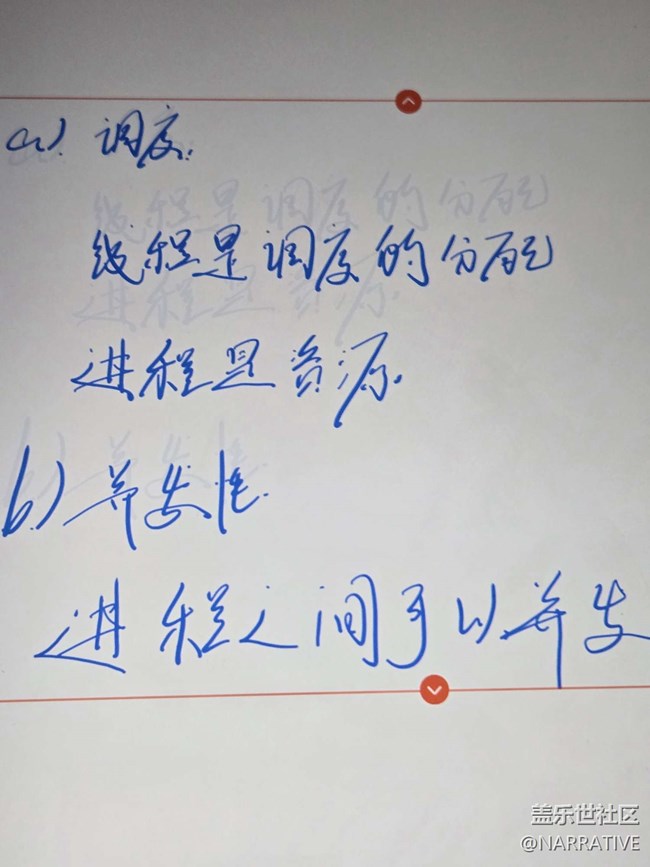 a) 调度:
线程是调度的分配
进程是资源.
b) 并发性.
进程之间可以并发
盖乐世社区
@NARRATIVE